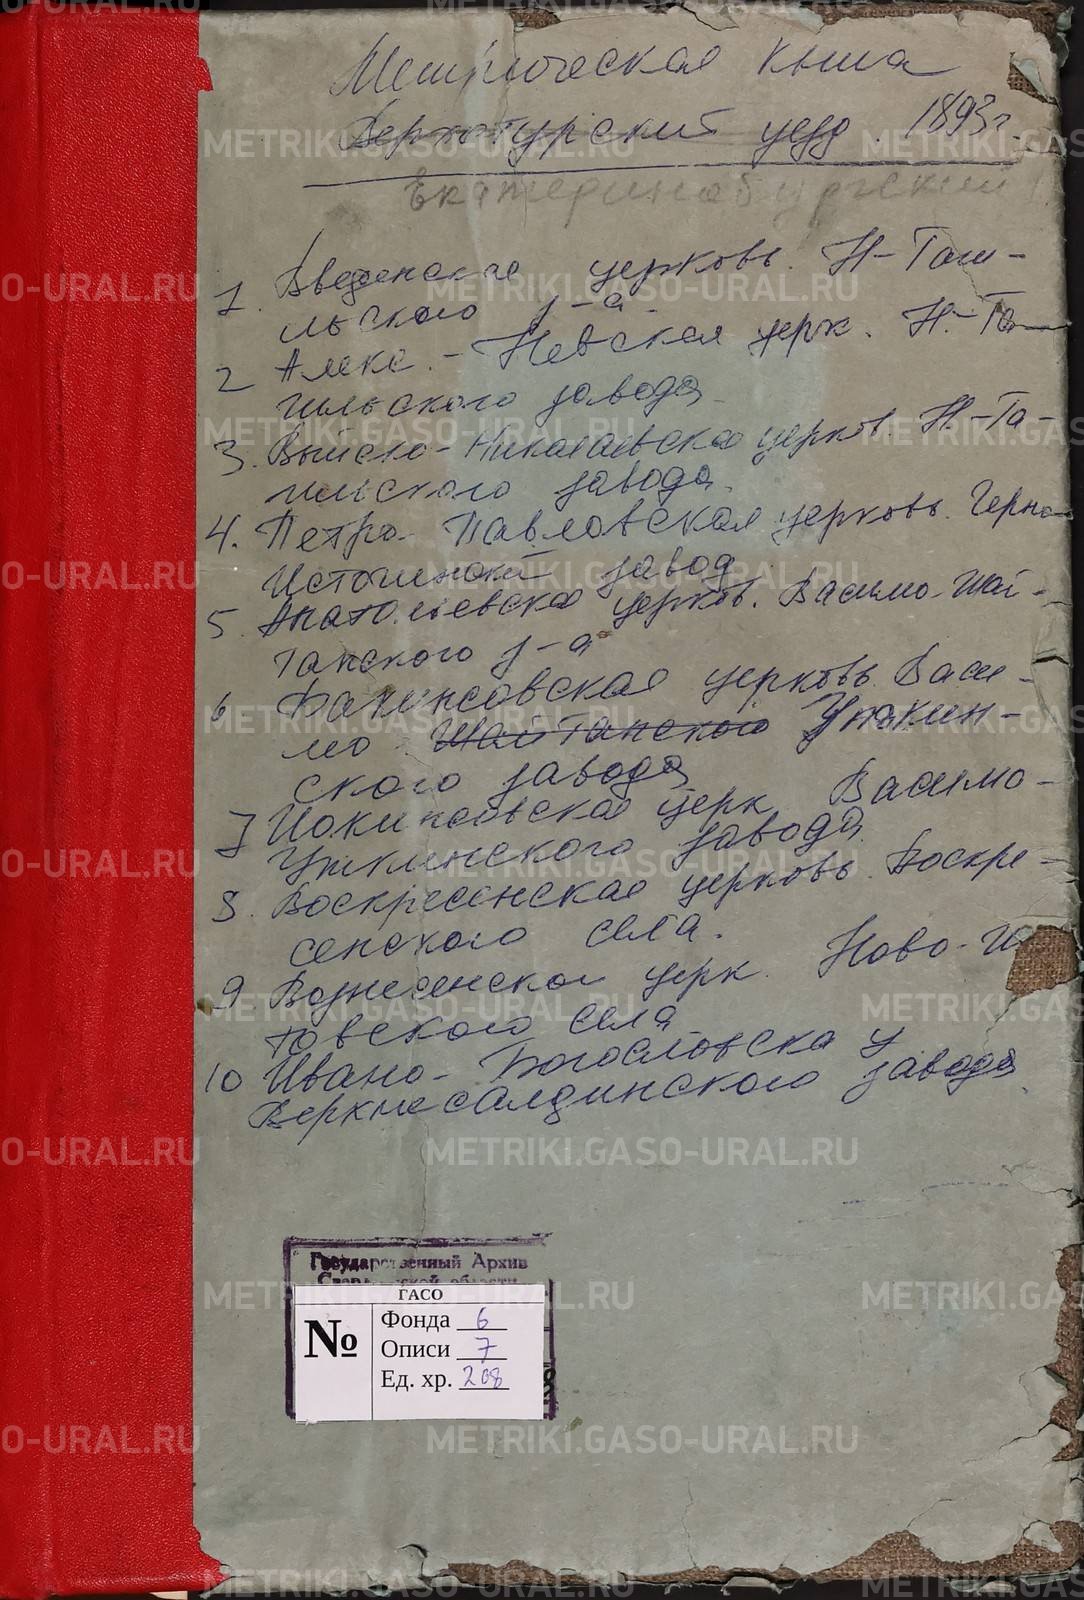 Метрическая книга
Верхотурский уезд. 1893 г.
Екатеринобургский
1. Введенская церковь. Н-Таги-
льского з-а.
2 Алекс. - Невская церк. Н.-Та-
гильского завода
3. Выйско-Николаевская церков. Н.-Та-
гильского завода.
4. Петро-Павловская церковь. Черно
Источинский завод
5. Анатольевская церков. Висимо-Шай-
танского з-а
6 церковь. Виси-
мо Шайтанского Уткин-
ского завода
7 церк Висимо-
Уткинского завода.
8. Воскресенская церковь. Воскре-
сенского села.
9 Вознесенской церк. Ново-И
товского села
10 Ивано-Богословска
Верхнесалдинского завода
Государственный Архив
ГАСО
№
Фонда 6
Описи 7
Ед. хр. 208
METRIKI.GASO-URAL.RU